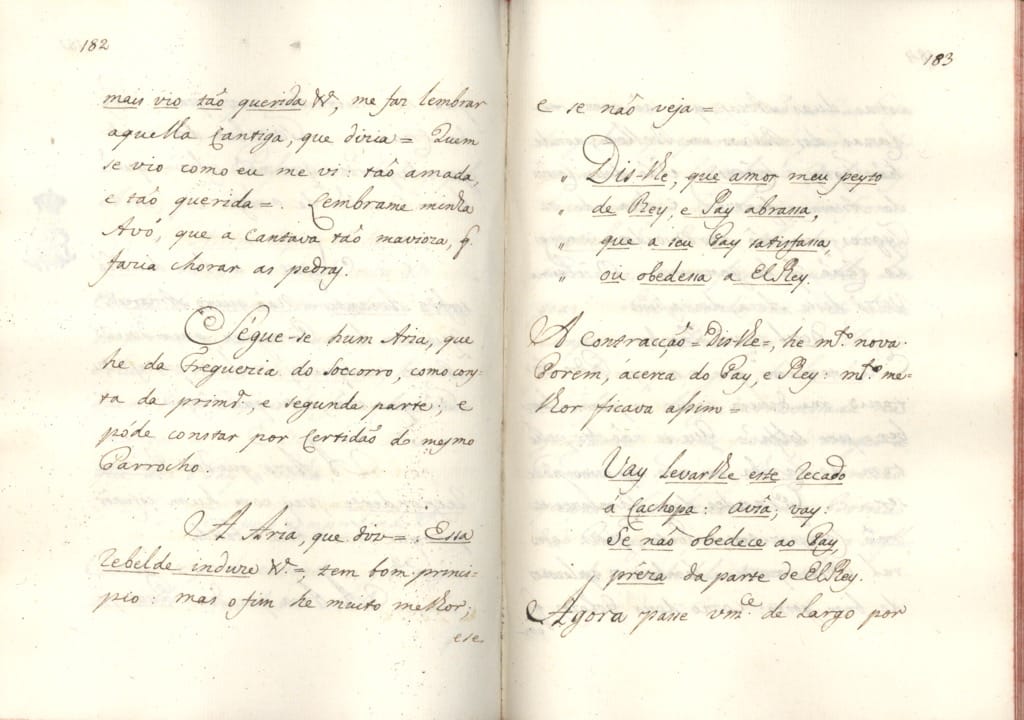 182
mais vio tão querida &, me faz lembrar
aquella Cantiga, que dizia = Quem
se vio como eu me vi: tão amada,
e tão querida =. Lembrame minha
Avó, que a Cantava tão mavioza, q.
faria chorar as pedras.
Segue-se hum Aria, que
he da Freguezia do Soccorro, como cons-
ta da primr.ª, e segunda parte; e
póde constar por Certidão do mesmo
Parrocho.
A Aria, que diz =, Essa
rebelde indure &.ª =, tem bom princi-
pio: mas o fim he muito melhor;
e se
183
e se não veja =
„ Dis-lhe, que amor meu peyto
„ de Rey, e Pay abrassa,
„ que a seu Pay satisfassa,
„ ou obedessa a ElRey.
A Contracção = Dis-lhe =, he mt.º nova.
Porem, ácerca do Pay, e Rey: mt.º me-
lhor ficava assim =
Vay levarlhe este recado
á Cachopa: aviâ, vay:
Se não obedece ao Pay,
préza da parte de ElRey.
Agora passe vm.ce de largo por